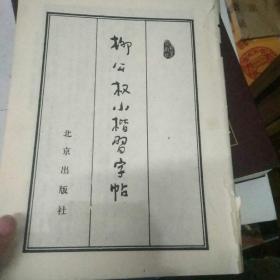 柳公权小楷习字帖
北京出版社